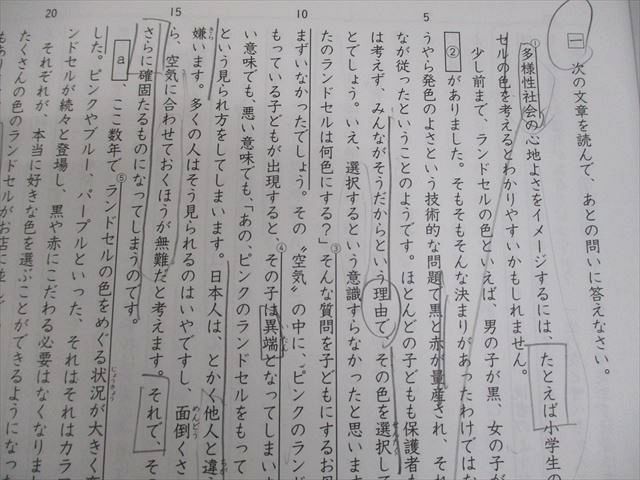 一 次の文章を読んで、あとの問いに答えなさい。
①多様性社会の心地よさをイメージするには、たとえば小学生の
セルの色を考えるとわかりやすいかもしれません。
少し前まで、ランドセルの色といえば、男の子が黒、女の子が
②がありました。そもそもそんな決まりがあったわけではな
うやら発色のよさという技術的な問題で黒と赤が量産され、それ
なが従ったということのようです。ほとんどの子どもも保護者も
は考えず、みんながそうだからという理由で、その色を選択して
せんたく
とでしょう。いえ、選択するという意識すらなかったと思います
たのランドセルは何色にする？」③そんな質問を子どもにするお母
まずいなかったでしょう。その〝空気〟の中に、ピンクのランド
もっている子どもが出現すると、④その子は異端となってしまいま
いたん
い意味でも、悪い意味でも、「あの、ピンクのランドセルをもって
という見られ方をしてしまいます。日本人は、とかく他人と違う
ちが
嫌います。多くの人はそう見られるのはいやですし、面倒くさ
きら
めんどう
ら、空気に合わせておくほうが無難だと考えます。それで、その
さらに確固たるものになってしまうのです。
a、ここ数年で⑤ランドセルの色をめぐる状況が大きく変
じょうきょう
した。ピンクやブルー、パープルといった、それはそれはカラフ
ンドセルが続々と登場し、黒や赤にこだわる必要はなくなりま
それぞれが、本当に好きな色を選ぶことができるようになっ
たくさんの色のランドセルがお店に並
5
10
15
20